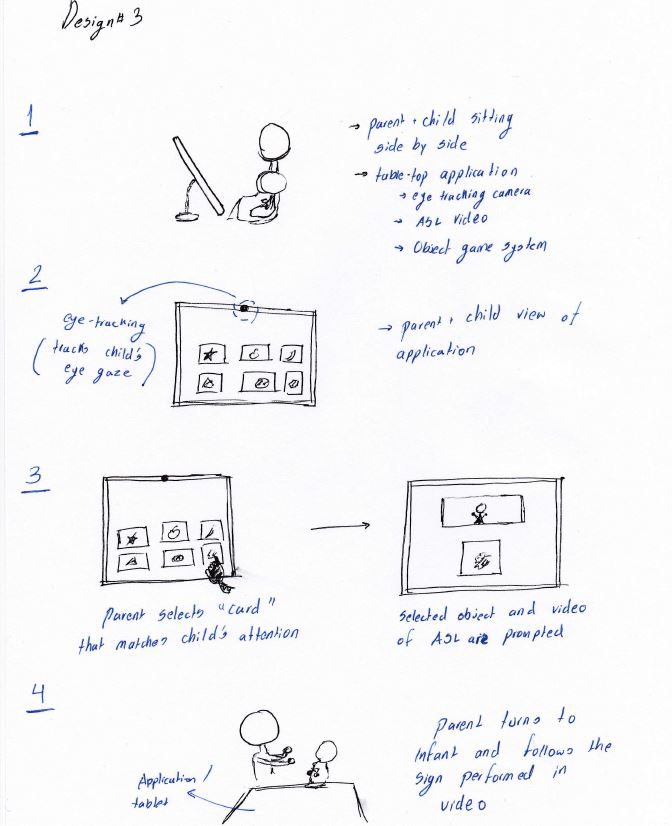 Design # 3
1
→ parent + child sitting
side by side
→ table-top application
→ eye tracking camera
→ ASL video
→ Object game system
2
eye-tracking
(tracks child's
eye gaze)
→ parent + child view of
application
3
Parent selects "card"
that matches child's attention
Selected object and video
of ASL are prompted
4
Application /
tablet
Parent turns to
Infant and follows the
sign performed in
video